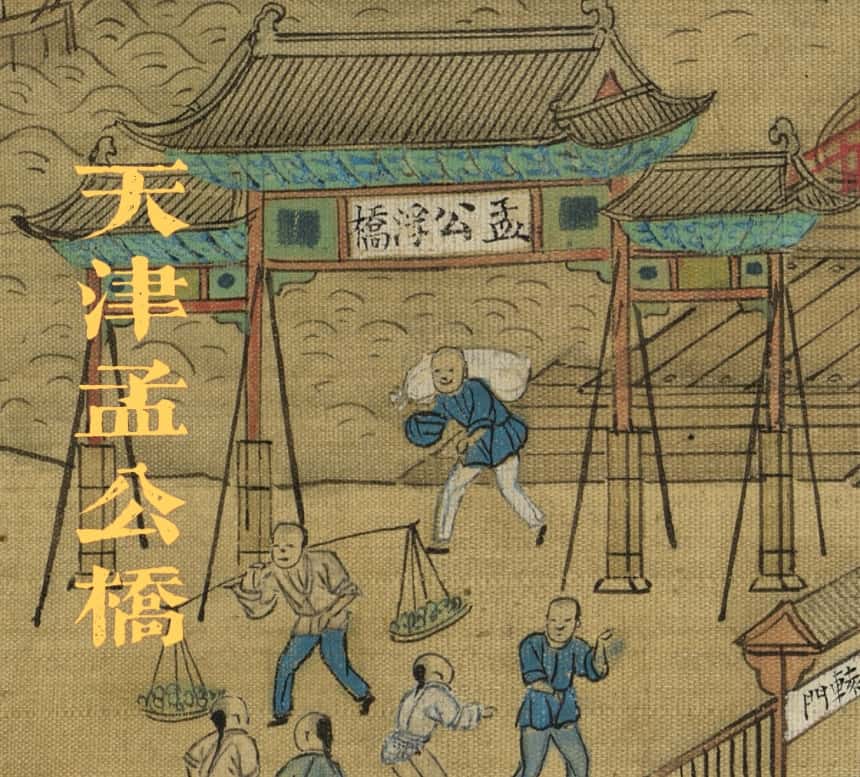 天津孟公橋
孟公浮橋
轅門